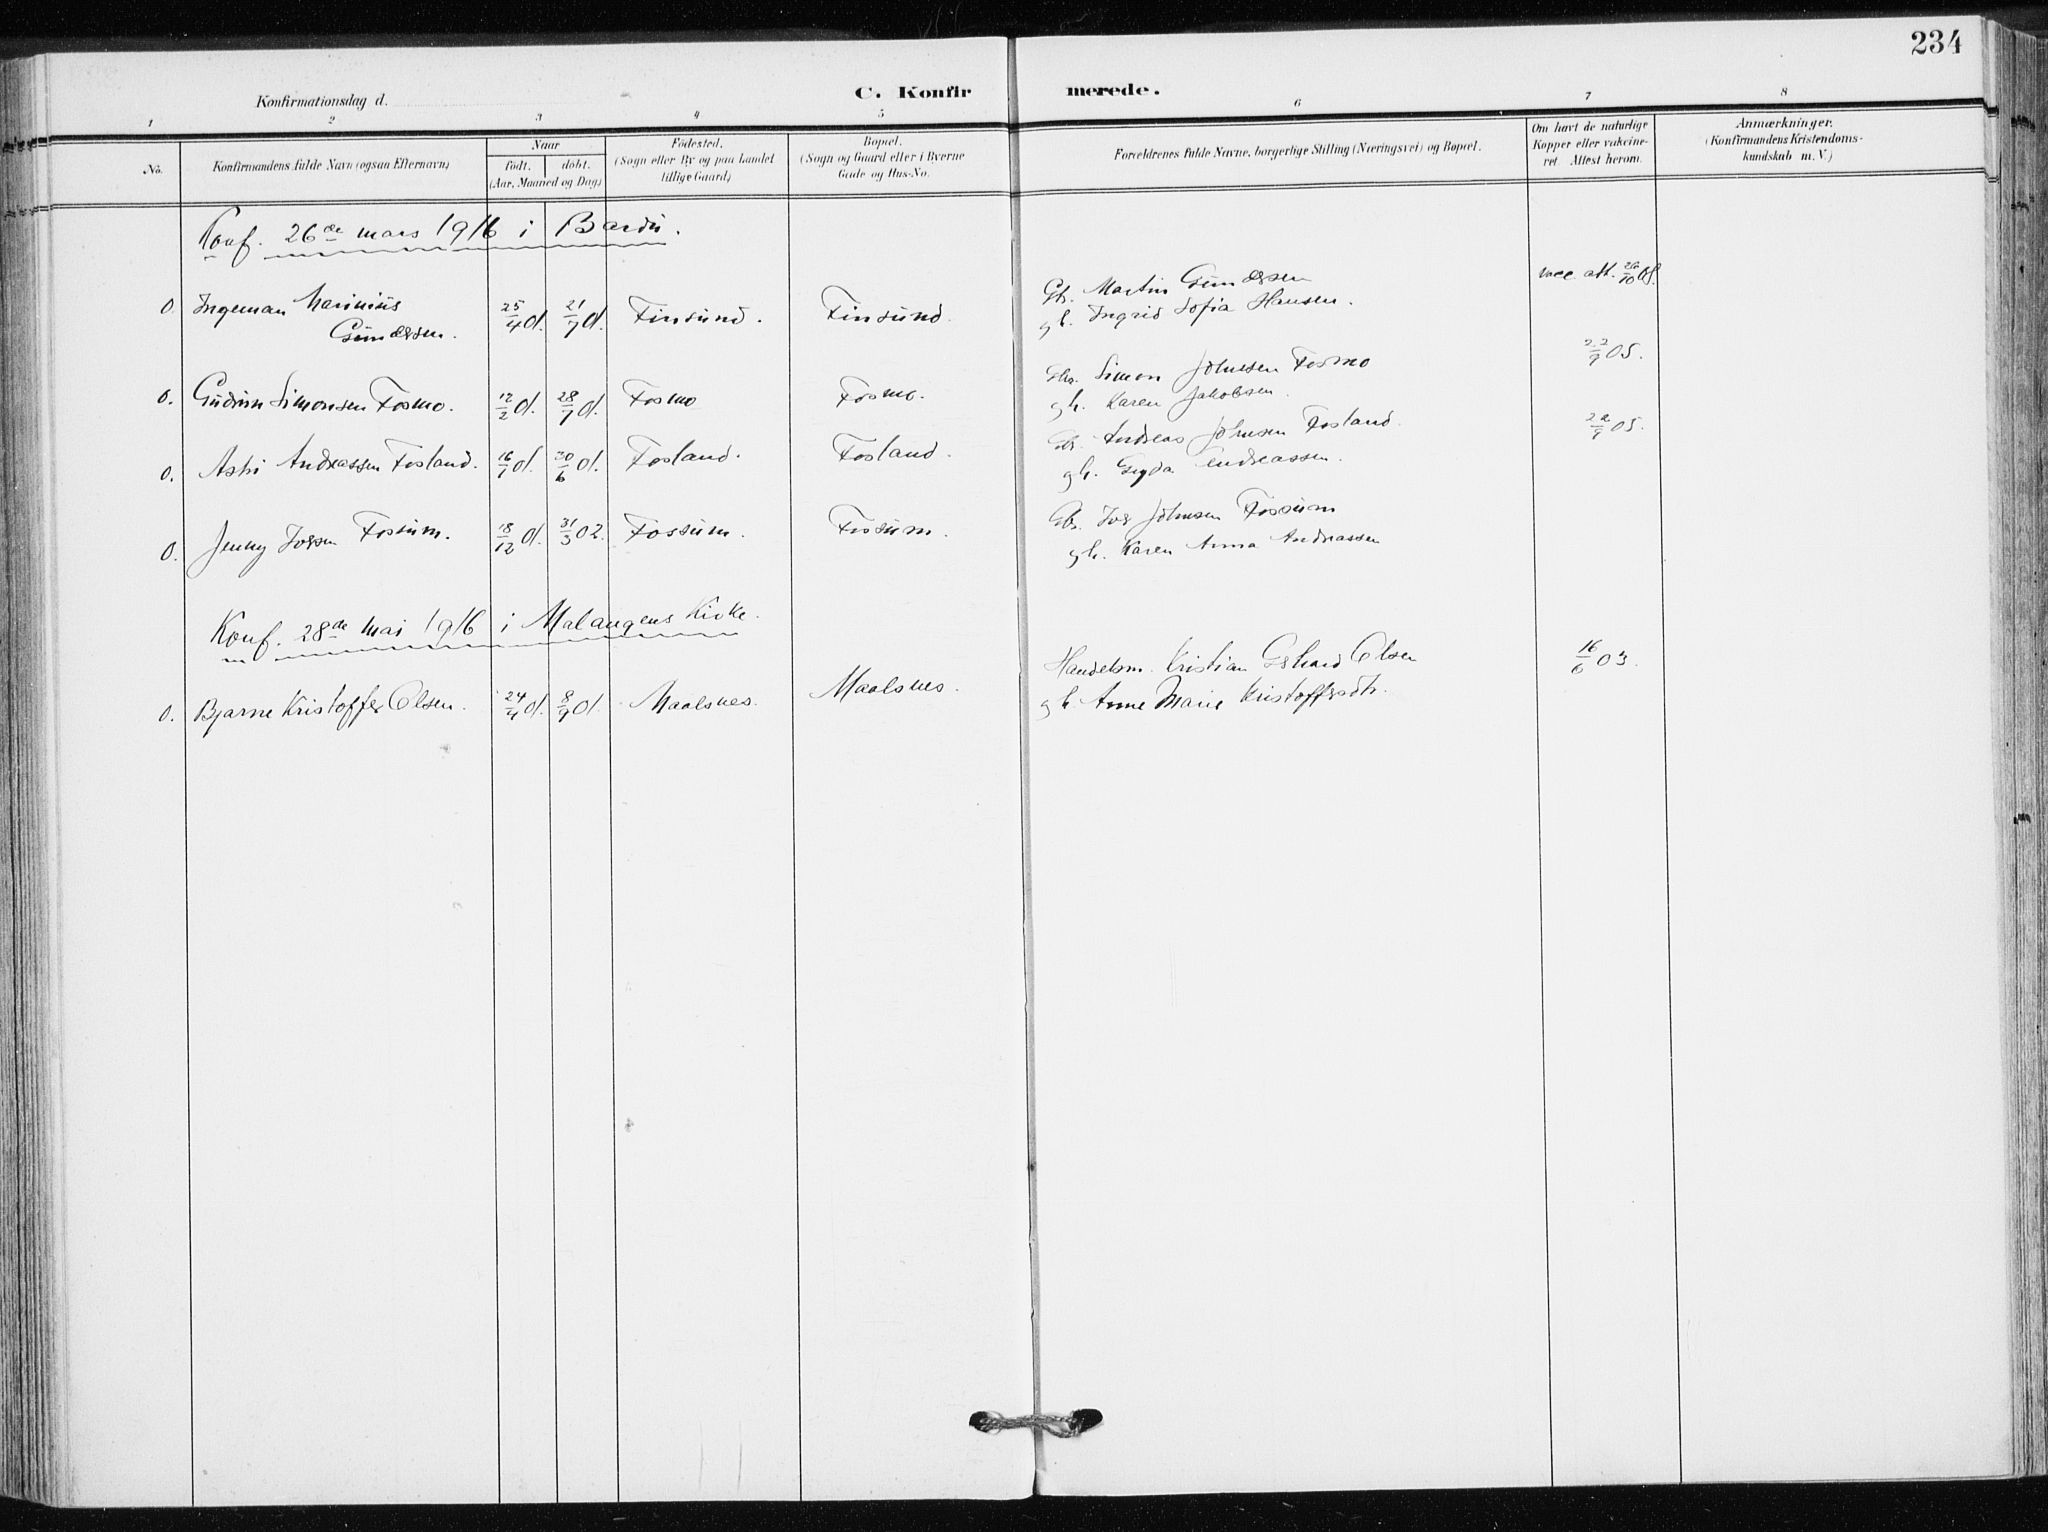 234
Konfirmationsdag d.
C. Konfirmerede.
1 2 3 4 5 6 7 8
No.
Konfirmandens fulde Navn (ogsaa Efternavn)
Naar
født. døbt.
(Aar, Maaned og Dag)
Fødested.
(Sogn eller By og paa Landet
tillige Gaard)
Bopæl.
(Sogn og Gaard eller i Byerne
Gade og Hus-No.
Forældrenes fulde Navne, borgerlige Stilling (Næringsvei) og Bopæl.
Om havt de naturlige
Kopper eller vakcine-
ret Attest herom.
Anmærkninger.
(Konfirmandens Kristendoms-
kundskab m. V.)
Konf. 26de mars 1916 i Bardu.
0. Ingeman Marinius 25/4 01. 21/7 01. Finsund. Finsund. Gbr. Martin Gundersen vac. att.
Gundersen. gh. Ingrid Sofia Hansen.
0. Gudrun Simonsen Fosmo. 12/2 01. 28/7 01. Fosmo Fosmo. Gbr. Simon Johnsen Fosmo 22/9 05.
gh. Karen Jakobsen.
0. Astri Andreassen Fosland. 16/1 01. 30/6 01. Fosland. Fosland. Gbr. Andreas Johnsen Fosland. 22/9 05.
gh. Gyda Andreassen.
0. Jenny Iversen Fossum. 18/12 01. 31/3 02. Fossum. Fossum. Gbr. Iver Johnsen Fossum
gh. Karen Anna Andreassen
Konf. 28de mai 1916 i Malangens Kirke.
0. Bjarne Kristoffer Olsen. 24/4 01. 8/9 01 Maalsnes. Maalsnes. Handelsm. Kristian Gerhard Olsen 16/6 03.
gh. Anne Marie Kristoffersdtr.